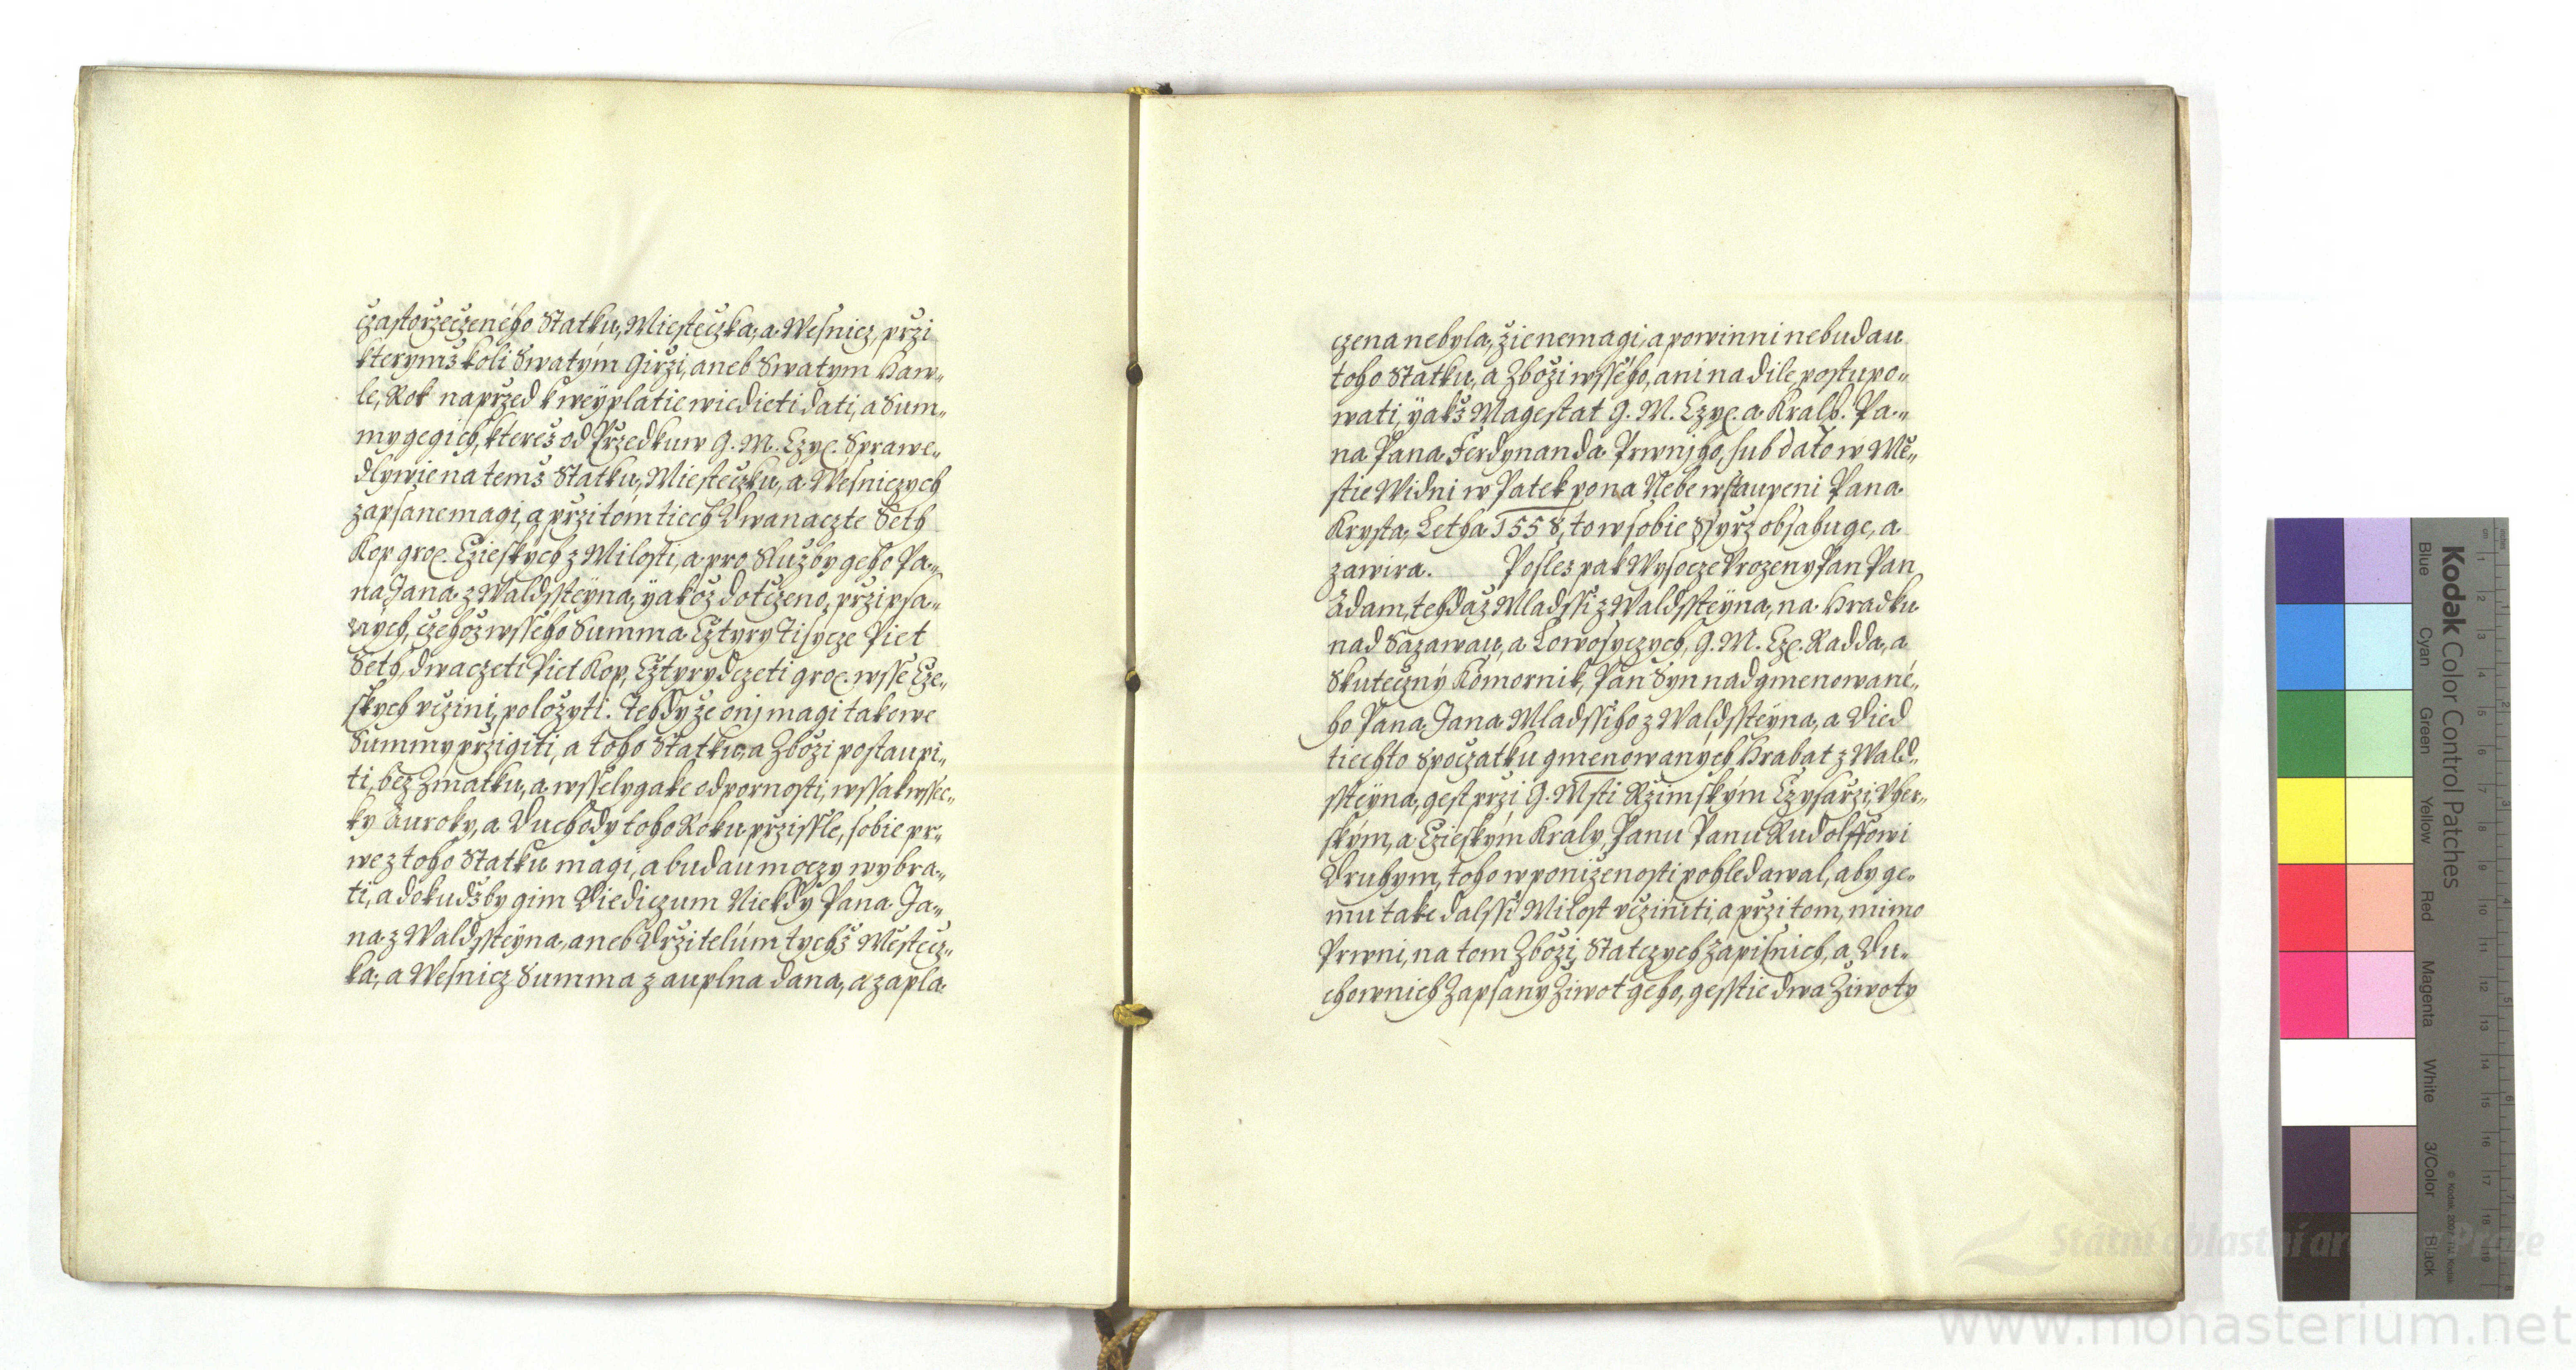 czastorzeczeného Statku, Miesteczka, a Wesnicz, przi
kterymž koli Swatým Girži, aneb Swatym Haw„
le, Rok naprzed k weyplatie wiedieti dati, a Sum„
my gegich, kterež od Przedkuw G. M. Czyc. Sprawe„
dlywie na temž Statku, Miesteczku, a Wesniczych
zapsane magi, a przi tom tiech Dwanaczte Seth
Kop groc. Czieskych z Milosti, a pro Služby geho Pa„
na Jana z Waldssteyna, yakož dotczeno, przipsa„
ných, czehož wsseho Summa Cztyry Tisycze Piet
Seth, dwaczeti Piet Kop, Cztyrydczeti groc. wsse Cze„
skych vczini, položyti. Tehdy že onj magi takowe
Summy przigiti, a toho Statku, a Zboži postaupi„
ti, bez Zmatku, a wsselygake odpornosti, wssak wssec„
ky Auroky, a Duchody toho Roku przissle, sobie pr„
we z toho Statku magi, a budau moczy wybra„
ti, a dokudž by gim Diediczum Niekdy Pana Ja„
na z Waldssteyna, aneb Držitelúm tychž Městecz„
ka, a Wesnicz Summa zauplna dana, a zapla„
czena nebyla, žie nemagi, a powinni nebudau
toho Statku, a Zboži wsseho, ani na dile, postupo„
wati, yakž Magestat G. M. Czyc. a Kralo. Pa„
na Pana Ferdynanda Prwnjho, sub dato w Mě„
stie Widni w Patek po na Nebe wstaupeni Pana
Krysta, Letha 1558, to w sobie Ssyrž obsahuge, a
zawira. Poslez pak Wysocze Vrozeny Pan Pan
Adam, tehdaž Mladssi z Waldssteyna, na Hradku
nad Sazawau, a Lowosyczych, G. M. Czc. Radda, a
Skuteczný Komornik, Pan Syn nadgmenowané„
ho Pana Jana Mladssiho z Waldssteyna, a Died
tiechto Spoczatku gmenowaných Hrabat z Wald„
ssteyna, gest przi G. Msti Rzimským Czysarzi, Vher„
ským, a Czieským Kraly, Panu Panu Rudolffowi
Druhym, toho w poniženosti pohledawal, aby ge„
mu take dalssi Milost vcziniti, a przi tom, mimo
Prwni, na tom Zboži, Statczych Zapisnich, a Du„
chownich Zapsany Život geho, gesstie dwa Životy
Kodak Color Control Patches
Blue Cyan Green Yellow Red Magenta White 3/Color Black
Státní oblastní archiv v Praze
www.monasterium.net